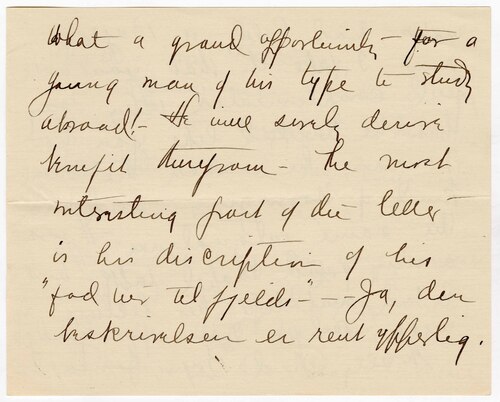 What a grand opportunity - for a
young man of his type to study
abroad! - He will surely derive
benefit therefrom - The most
interesting part of the letter
is his discription of his
"fod tur til fjelds" - - Ja, den
beskrivelsen er rent ypperlig.